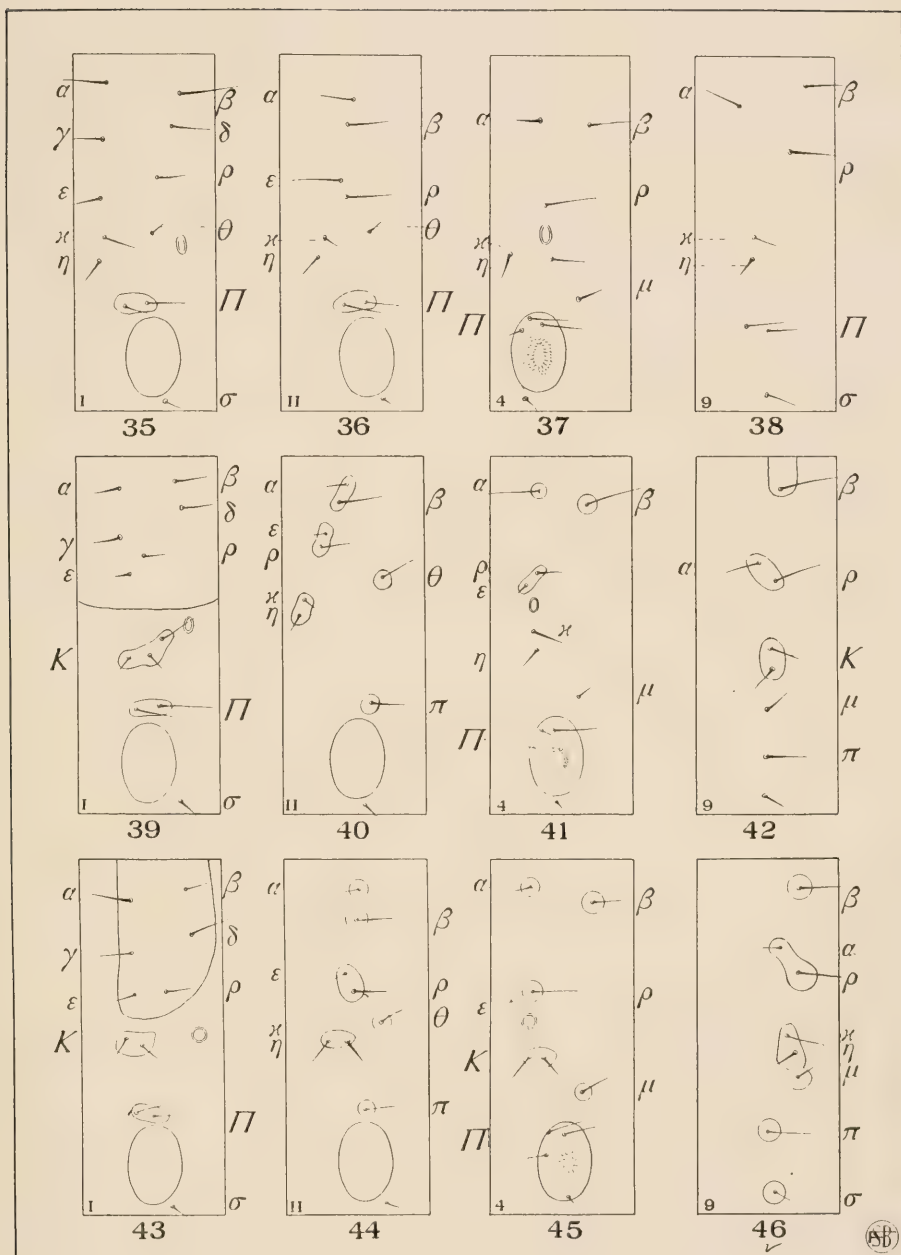 α β
γ δ
ε ρ
ϰ θ
η
Π
I σ
35
α
β
ε
ρ
ϰ θ
η
Π
II
36
α β
ρ
ϰ
η
μ
Π
4
37
α β
ρ
ϰ
η
Π
9 σ
38
α β
δ
γ
ρ
ε
K
Π
I σ
39
α
β
ε
ρ
θ
ϰ
η
π
II
40
α
β
ρ
ε
ϰ
η
μ
Π
4
41
β
α ρ
K
μ
π
9
42
α β
δ
γ
ε ρ
K
Π
I σ
43
α
β
ε
ρ
θ
ϰ
η
π
II
44
α
β
ε ρ
K
μ
Π
4
45
β
α
ρ
ϰ
η
μ
π
9 σ
46